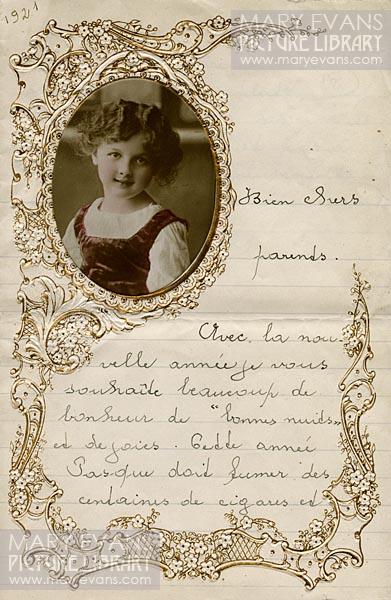 1921
MARY EVANS
PICTURE LIBRARY
www.maryevans.com
Bien chers
parents.
Avec la nou-
velle année je vous
souhaite beaucoup de
bonheur de "bonnes nuits"
et de joies. Cette année
Pasque doit fumer des
centaines de cigares et
MARY EVANS
PICTURE LIBRARY
www.maryevans.com
MARY EVANS
PICTURE LIBRARY
www.maryevans.com